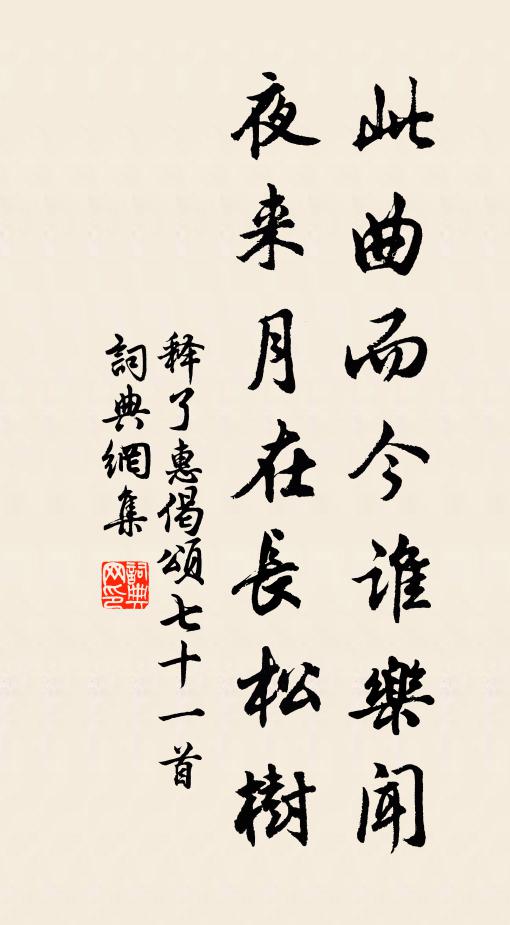 此曲而今谁樂闻
夜来月在長松樹
释了惠偈頌七十一首
詞典網集
詞典
网印